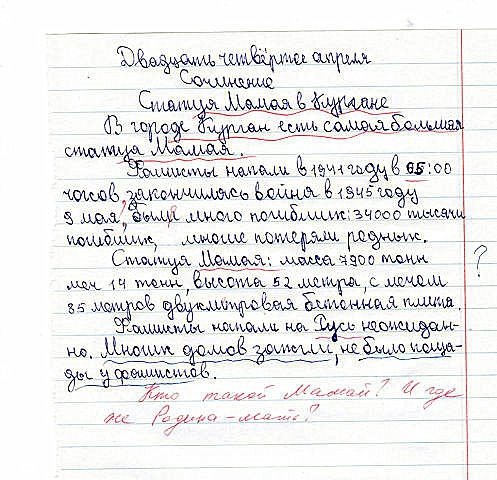 Двадцать четвёртое апреля
Сочинение
Статуя Мамая в Кургане
В городе Курган есть самая большая
статуя Мамая.
Фашисты напали в 1941 году в 05:00
часов, закончилась война в 1945 году
9 мая, были много погибших: 34000 тысячи
погибших, многие потеряли родных.
Статуя Мамая: масса 7900 тонн
меч 14 тонн, высота 52 метра, с мечом
85 метров двухметровая бетонная плита.
?
Фашисты напали на Русь неожидан-
но. Многих домов зажгли, не было поща-
ды у фашистов.
Кто такой Мамай? И где
же Родина-мать?